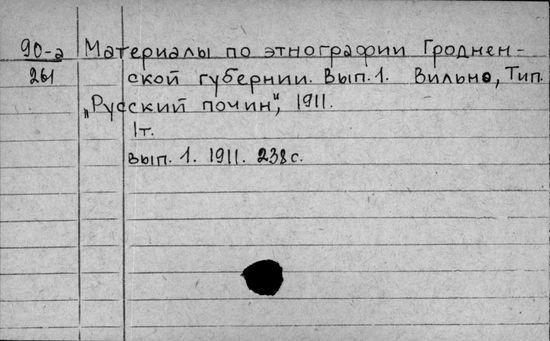 90-а Материалы по этнографии Гроднен-
261 ской губернии. Вып. 1. Вильно, Тип.
„Русский почин", 1911.
1т.
вып. 1. 1911. 238 с.